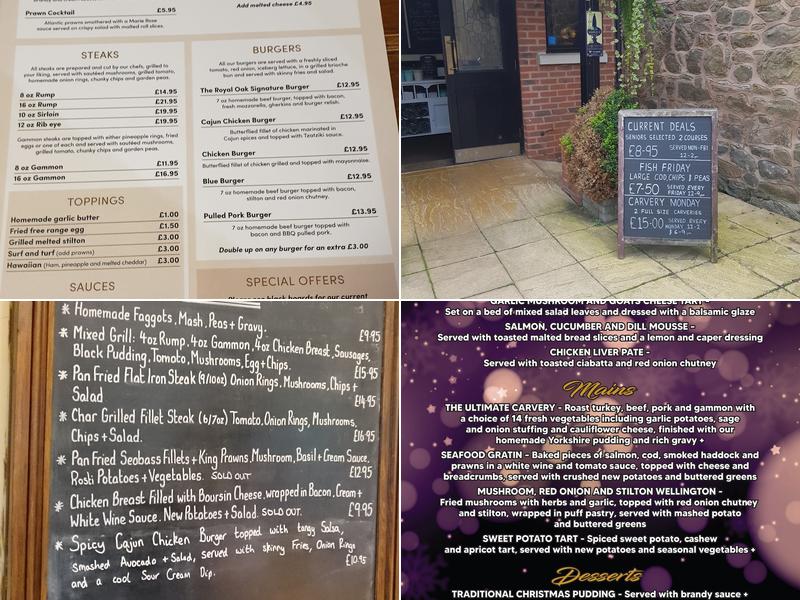 Prawn Cocktail £5.95
Atlantic prawns smothered with a Marie Rose
sauce served on crispy salad with malted roll
Add melted cheese £4.95
STEAKS
All steaks are prepared and cut by our chefs, grilled to
your liking, served with sautéed mushrooms, grilled tomato,
homemade onion rings, chunky chips and garden peas.
8 oz Rump £14.95
16 oz Rump £21.95
10 oz Sirloin £19.95
12 oz Rib eye £19.95
Gammon steaks are topped with either pineapple rings, fried
eggs or one of each and served with sautéed mushrooms,
grilled tomato, chunky chips and garden peas.
8 oz Gammon £11.95
16 oz Gammon £16.95
TOPPINGS
Homemade garlic butter £1.00
Fried free range egg £1.50
Grilled melted stilton £3.00
Surf and turf (add prawns) £3.00
Hawaiian (Ham, pineapple and melted cheddar) £3.00
SAUCES
BURGERS
All our burgers are served with a freshly sliced
tomato, red onion, iceberg lettuce, in a grilled brioche
bun and served with skinny fries and salad.
The Royal Oak Signature Burger £12.95
7 oz homemade beef burger, topped with bacon,
fresh mozzarella, gherkins and burger relish.
Cajun Chicken Burger £12.95
Butterflied fillet of chicken marinated in
Cajun spices and topped with Tzatziki sauce.
Chicken Burger £12.95
Butterflied fillet of chicken grilled and topped with mayonnaise.
Blue Burger £12.95
7 oz homemade beef burger, topped with bacon,
stilton and red onion chutney.
Pulled Pork Burger £13.95
7 oz homemade beef burger topped with
bacon and BBQ pulled pork.
Double up on any burger for an extra £3.00
SPECIAL OFFERS
Please see black boards for our current
CURRENT DEALS
SENIORS SELECTED 2 COURSES
£8-95 SERVED MON-FRI
12-2
FISH FRIDAY
LARGE COD, CHIPS & PEAS
£7-50 SERVED EVERY
FRIDAY 12-9
CARVERY MONDAY
2 FULL SIZE CARVERIES
£15-00 SERVED EVERY
MONDAY 12-2
& 6-9
* Homemade Faggots, Mash, Peas + Gravy. £9.95
* Mixed Grill: 4oz Rump, 4oz Gammon, 4oz Chicken Breast, Sausages,
Black Pudding, Tomato, Mushrooms, Egg + Chips. £15.95
* Pan Fried Flat Iron Steak (9/10oz) Onion Rings, Mushrooms, Chips +
Salad £14.95
* Char Grilled Fillet Steak (6/7oz) Tomato, Onion Rings, Mushrooms,
Chips + Salad. £16.95
* Pan Fried Seabass Fillets + King Prawns, Mushroom, Basil + Cream Sauce,
Rosti Potatoes + Vegetables. SOLD OUT £12.95
* Chicken Breast Filled with Boursin Cheese, wrapped in Bacon, Cream +
White Wine Sauce. New Potatoes + Salad. SOLD OUT. £9.95
* Spicy Cajun Chicken Burger topped with tangy Salsa,
Smashed Avocado + Salad, served with skinny Fries, Onion Rings
and a cool Sour Cream Dip. £10.95
GARLIC MUSHROOM AND GOATS CHEESE TART -
Set on a bed of mixed salad leaves and dressed with a balsamic glaze
SALMON, CUCUMBER AND DILL MOUSSE -
Served with toasted malted bread slices and a lemon and caper dressing
CHICKEN LIVER PATE -
Served with toasted ciabatta and red onion chutney
Mains
THE ULTIMATE CARVERY - Roast turkey, beef, pork and gammon with
a choice of 14 fresh vegetables including garlic potatoes, sage
and onion stuffing and cauliflower cheese, finished with our
homemade Yorkshire pudding and rich gravy +
SEAFOOD GRATIN - Baked pieces of salmon, cod, smoked haddock and
prawns in a white wine and tomato sauce, topped with cheese and
breadcrumbs, served with crushed new potatoes and buttered greens
MUSHROOM, RED ONION AND STILTON WELLINGTON -
Fried mushrooms with herbs and garlic, topped with red onion chutney
and stilton, wrapped in puff pastry, served with mashed potato
and buttered greens
SWEET POTATO TART - Spiced sweet potato, cashew
and apricot tart, served with new potatoes and seasonal vegetables +
Desserts
TRADITIONAL CHRISTMAS PUDDING - Served with brandy sauce +